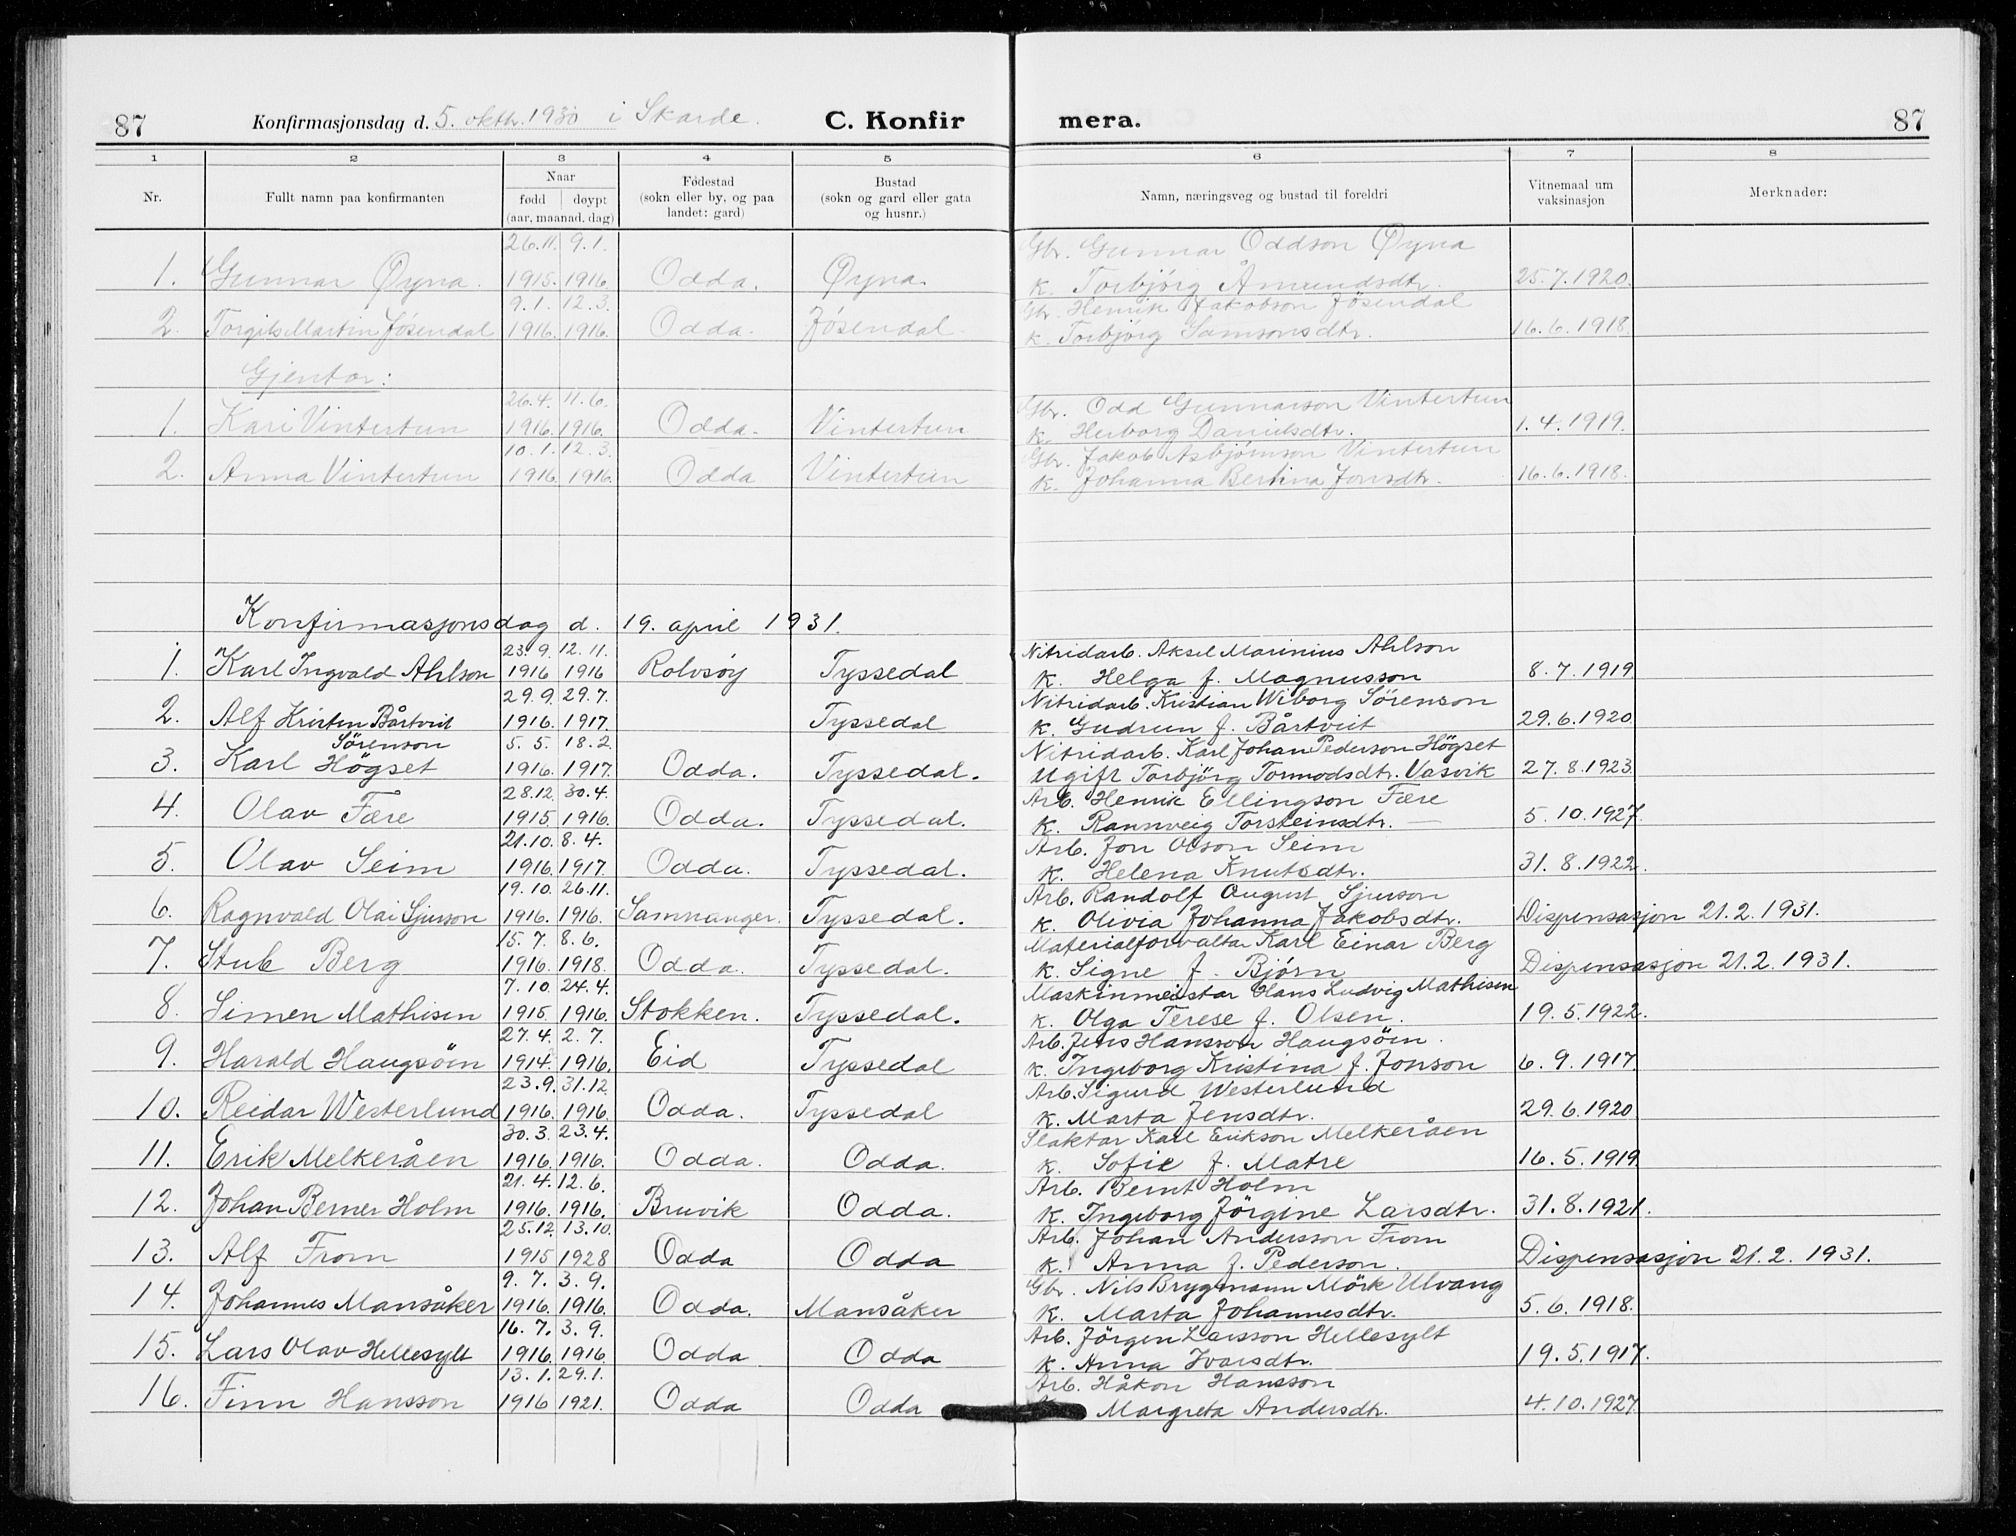 87 Konfirmasjonsdag d. 5. oktbr. 1930 i Skarde. C. Konfir mera. 87
1 2 3 4 5 6 7 8
Nr. Fullt namn paa konfirmanten Naar født døypt (aar, maanad, dag) Fødestad (sokn eller by, og paa landet: gard) Bustad (sokn og gard eller gata og husnr.) Namn, næringsveg og bustad til foreldri Vitnemaal um vaksinasjon Merknader:
26.11. 9.1. Gbr. Gunnar Oddson Øyna
1. Gunnar Øyna. 1915. 1916. Odda. Øyna. K. Torbjörg Åmundsdtr. 25.7.1920.
9.1. 12.3. Gbr. Henrik Jakobson Jösendal
2. Torgils Martin Jösendal 1916. 1916. Odda. Jösendal. K. Torbjörg Samsonsdtr. 16.6.1918.
Gjentor:
26.4. 11.6. Gbr. Odd Gunnarson Vintertun
1. Kari Vintertun 1916. 1916. Odda. Vintertun K. Herborg Danielsdtr. 1.4.1919.
10.1. 12.3. Gbr. Jakob Asbjörnson Vintertun
2. Anna Vintertun 1916. 1916. Odda Vintertun K. Johanna Bertina Jonsdtr. 16.6.1918.
Konfirmasjonsdag d. 19. april 1931.
23.9. 12.11. Nitridarb. Aksel Marinius Ahlson
1. Karl Ingvald Ahlson 1916 1916 Rolvsöy Tyssedal K. Helga f. Magnusson 8.7.1919
29.9. 29.7. Nitridarb. Kristian Wiborg Sörenson
2. Alf Kristen Bårtveit 1916. 1917. Tyssedal K. Gudrun f. Bårtveit 29.6.1920
Sörenson 5.5. 18.2. Nitridarb. Karl Johan Pederson Högset
3. Karl Högset 1916. 1917. Odda. Tyssedal. Ugift Torbjörg Tormodsdtr. Vasvik 27.8.1923
28.12. 30.4. Arb. Henrik Ellingson Fære
4. Olav Fære 1915 1916. Odda. Tyssedal. K. Rannveig Torsteinsdtr. 5.10.1927.
21.10. 8.4. Arb. Jon Olson Seim
5. Olav Seim 1916. 1917. Odda. Tyssedal. K. Helena Knutsdtr. 31.8.1922.
19.10. 26.11. Arb. Randolf August Sjurson
6. Ragnvald Olai Sjurson 1916. 1916. Samnanger. Tyssedal. K. Olivia Johanna Jakobsdtr. Dispensasjon 21.2.1931.
15.7. 8.6. Materialforvaltar Karl Einar Berg
7. Stub Berg 1916. 1918. Odda. Tyssedal. K. Signe f. Björn Dispensasjon 21.2.1931.
7.10. 24.4. Maskinmeistar Hans Ludvig Mathisen
8. Simen Mathisen 1915 1916. Stokken. Tyssedal. K. Olga Terese f. Olsen. 19.5.1922.
27.4. 2.7. Arb. Jens Hansson Haugsöen.
9. Harald Haugsöen 1914. 1916. Eid Tyssedal K. Ingeborg Kristina f. Jonson 6.9.1917
23.9. 31.12. Arb. Sigurd Westerlund
10. Reidar Westerlund 1916. 1916. Odda. Tyssedal K. Marta Jensdtr. 29.6.1920
30.3. 23.4. Slaktar Karl Erikson Melkeråen
11. Erik Melkeråen 1916. 1916. Odda. Odda. K. Sofie f. Matre 16.5.1919
21.4. 12.6. Arb. Bernt Holm
12. Johan Berner Holm 1916. 1916. Bruvik Odda. K. Ingeborg Jörgine Larsdtr. 31.8.1921.
25.12. 13.10. Arb. Johan Andersson From
13. Alf From 1915 1928 Odda Odda K. Anna f. Pederson. Dispensasjon 21.2.1931.
9.7. 3.9. Gbr. Nils Brygmann Mörk Ulvang
14. Johannes Mansåker 1916. 1916. Odda. Mansåker K. Marta Johannesdtr. 5.6.1918.
16.7. 3.9. Arb. Jörgen Larsson Hellesylt
15. Lars Olav Hellesylt 1916. 1916. Odda Odda K. Anna Ivarsdtr. 19.5.1917.
13.1. 29.1. Arb. Håkon Hansson
16. Finn Hansson 1916 1921. Odda Odda Margreta Andersdtr. 4.10.1927.